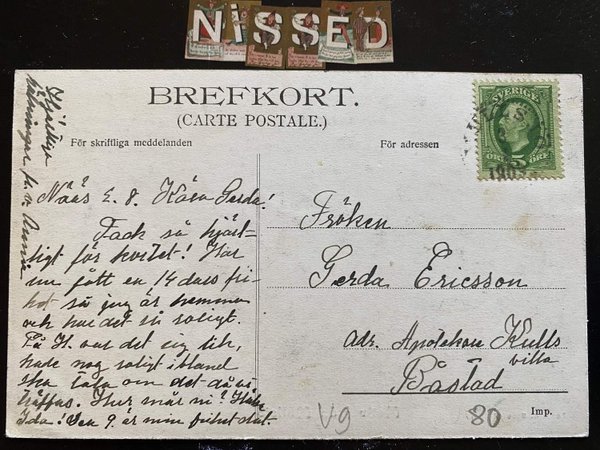 NiSSED
BREFKORT.
(CARTE POSTALE.)
För skriftliga meddelanden
För adressen
SVERIGE
5
ÖRE ÖRE
Hjärtliga
hälsningar fr. v. Anna
Nääs 2. 8. Kära Gerda!
Tack så hjärt-
ligt för kortet! Har
nu fått en 14 dars fri-
het så jag är hemma
och har det så roligt.
På H. var det ej
hade nog roligt ibland
ska tala om det då vi
träffas. Hur mår ni? Hälsa
Ida! Den 9. är min frihet slut.
Fröken
Gerda Ericsson
adr. Apotekare Kulls
villa
Båstad
V9
80
Imp.